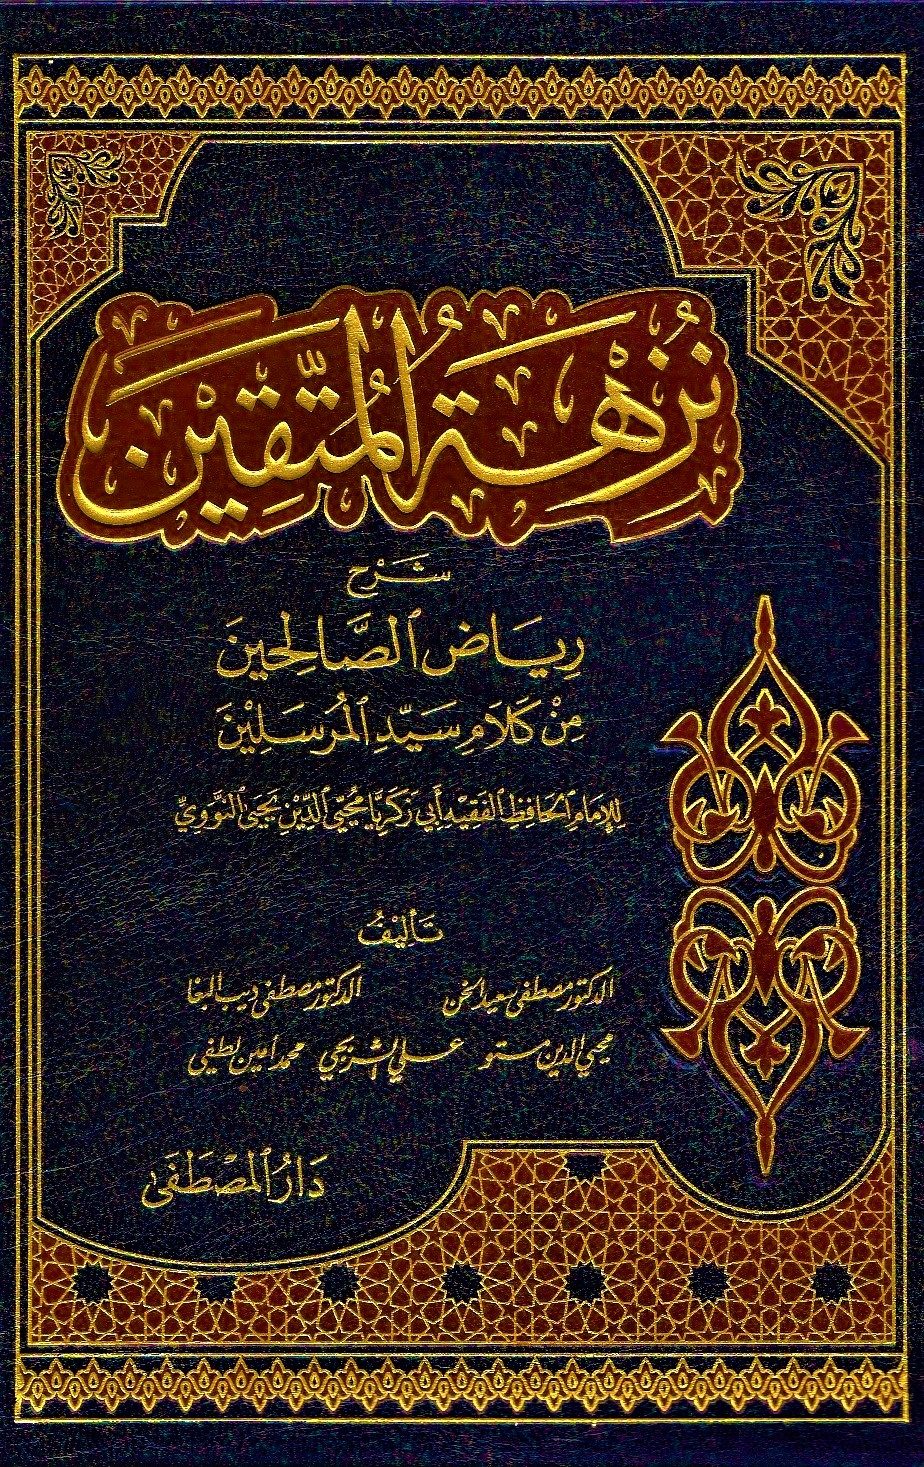 نُزْهَةُ الْمُتَّقِيْنَ
شَرْحُ
رِيَاضِ الصَّالِحِينَ
مِنْ كَلَامِ سَيِّدِ الْمُرْسَلِيْنَ
لِلإِمَامِ الْحَافِظِ الْفَقِيْهِ أَبِي زَكَرِيَّا مُحْيِي الدِّيْنِ يَحْيَى النَّوَوِيِّ
تَأْلِيْفُ
الدكتور مصطفى سعيد الخن الدكتور مصطفى ديب البغا
محيي الدين مستو علي الشربجي محمد أمين لطفي
دَارُ الْمُصْطَفَى